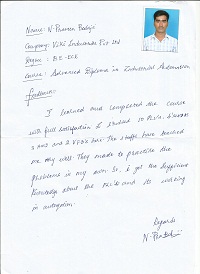 Name: N. Praveen Balaji
Company: Viki Industries Pvt Ltd
Degree: B.E-ECE
Course: Advanced Diploma in Industrial Automation
Feedback:
I learned and completed the course
with full satisfaction. I studied 10 PLC's, 5 SCADA
2 HMI and 2 VFD's here. The staffs have teached
me very well. They made to practise the
problems in my own. So, I got the sufficient
knowledge about the PLC's and its working
in automation.
Regards